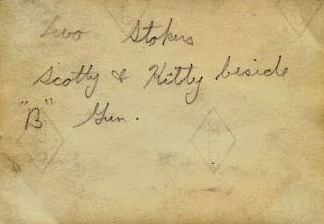 Two Stokers
Scotty & Kitty beside
"B" Gun.